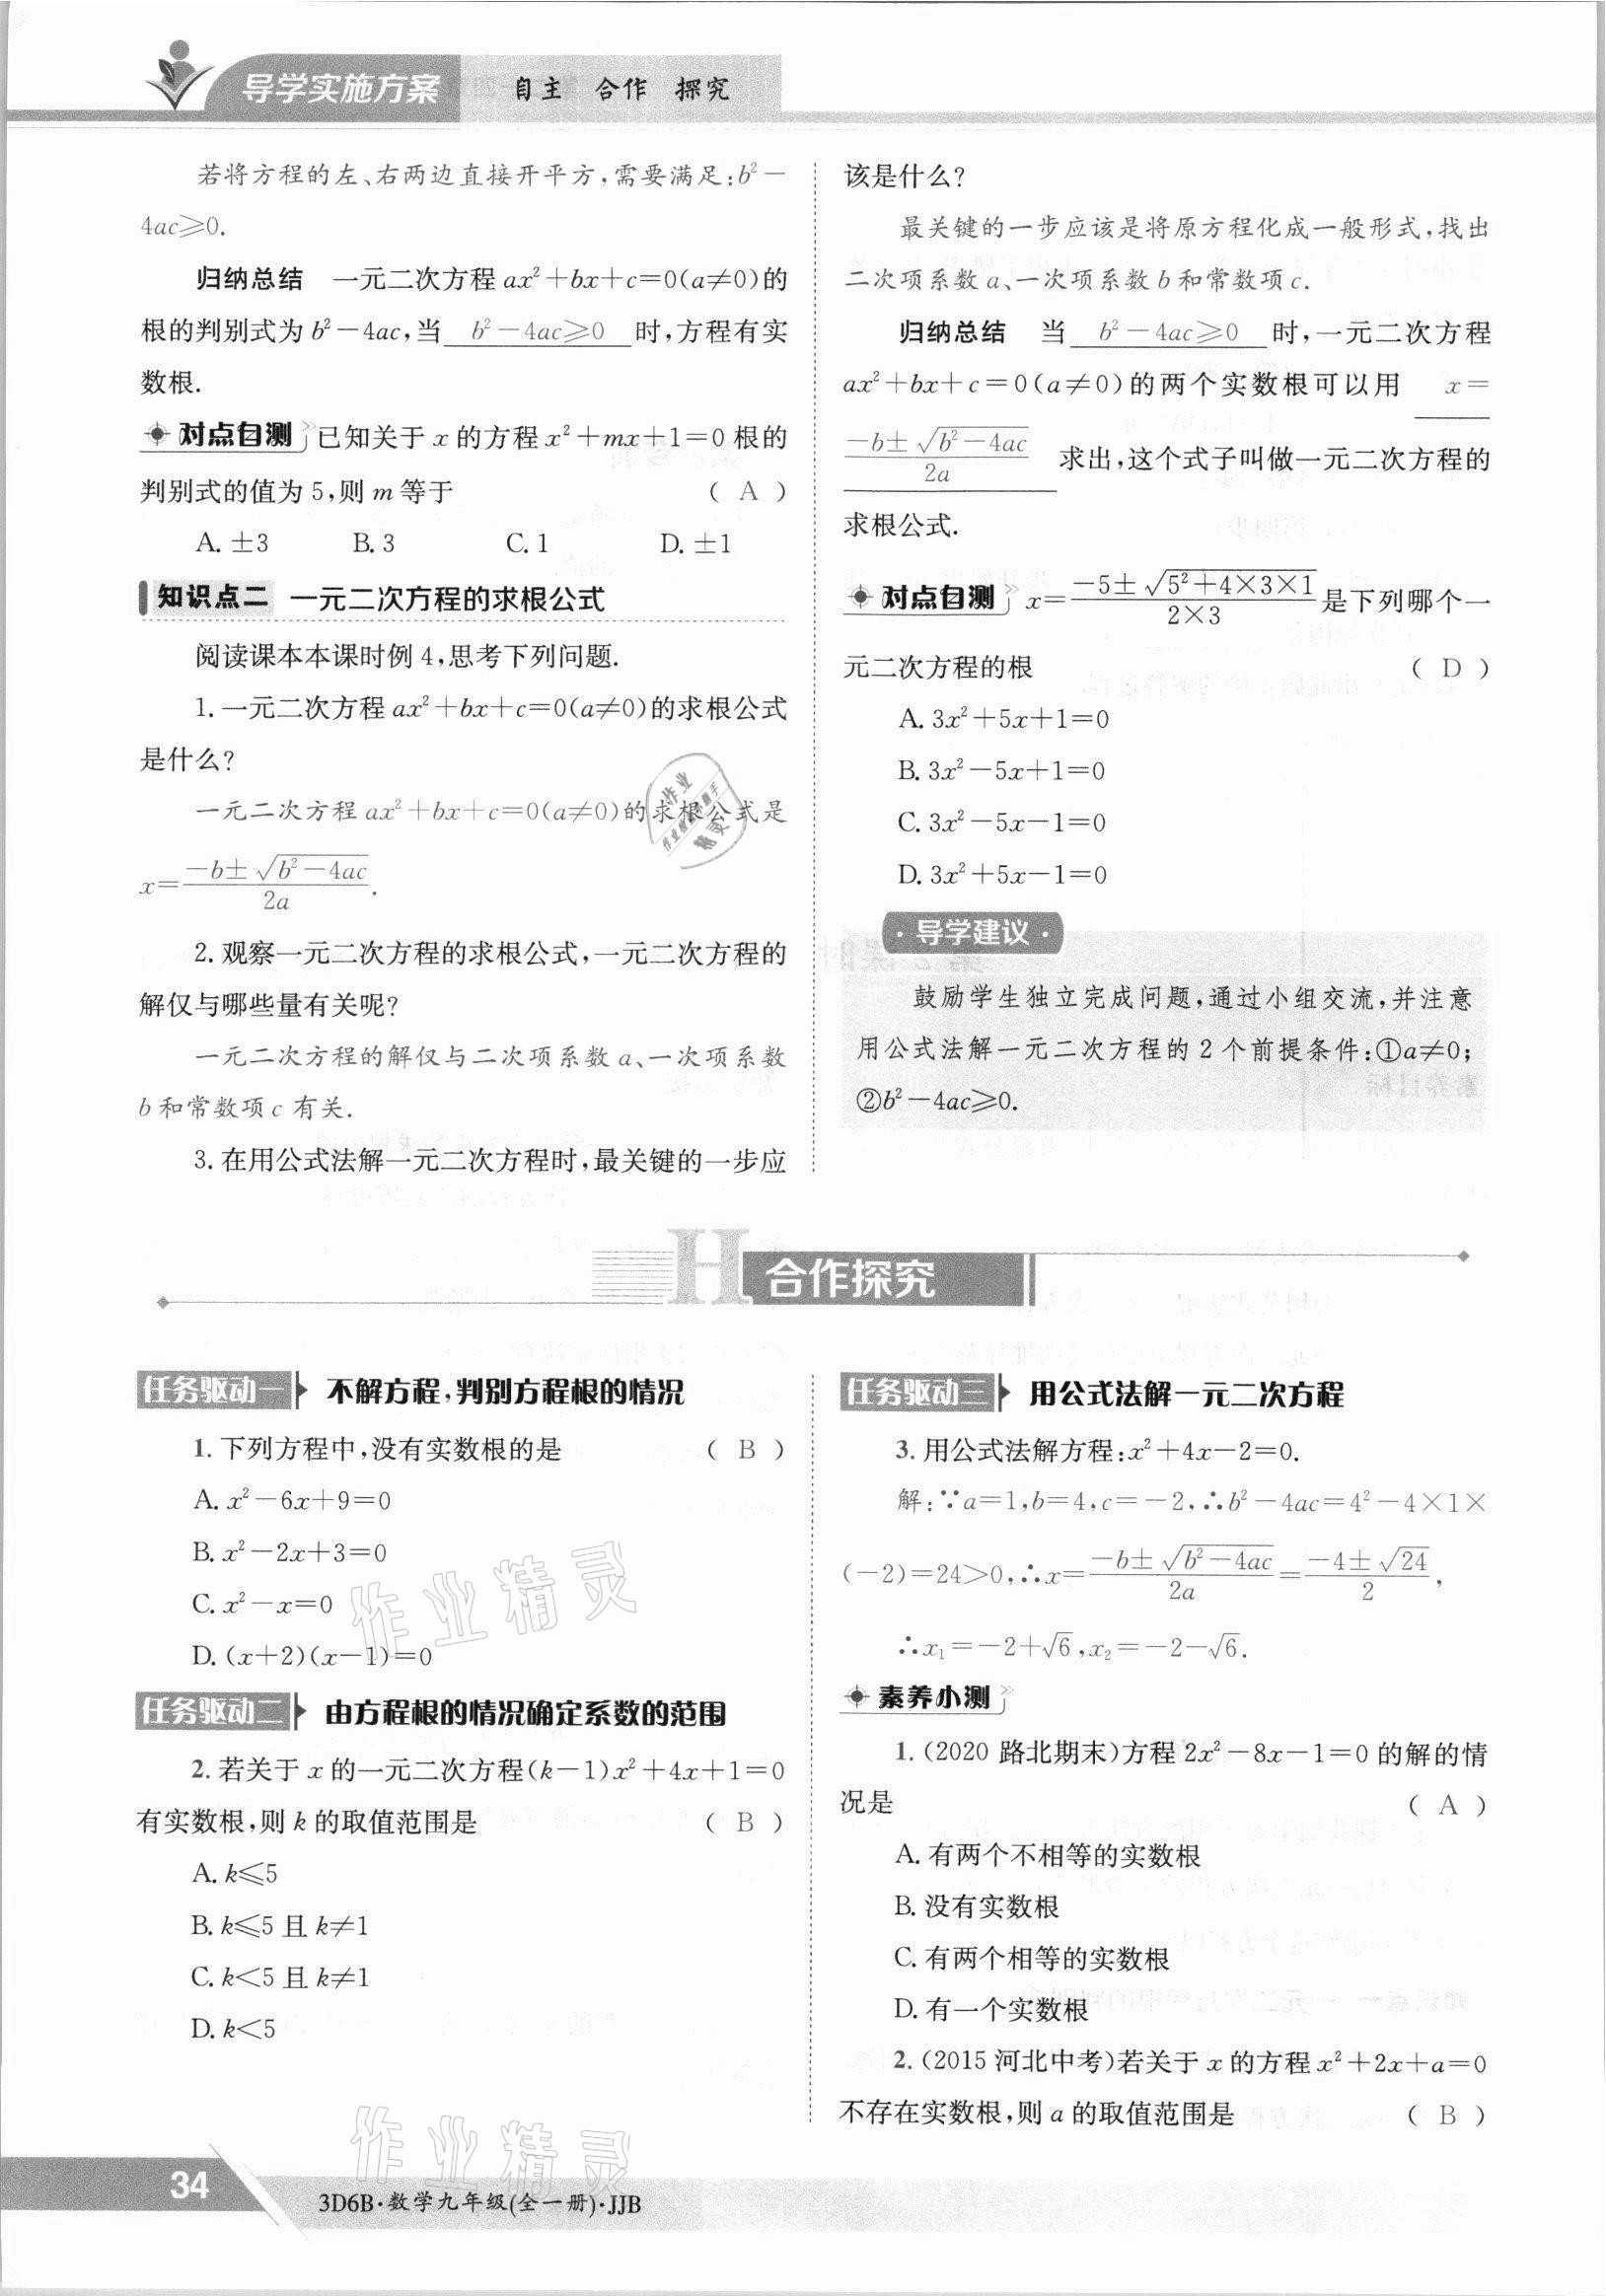 导学实施方案 自主 合作 探究
若将方程的左、右两边直接开平方,需要满足:b²-
4ac≥0.
归纳总结 一元二次方程ax²+bx+c=0(a≠0)的
根的判别式为b²-4ac,当 b²-4ac≥0 时,方程有实
数根.
对点自测 已知关于x的方程x²+mx+1=0根的
判别式的值为5,则m等于 ( A )
A. ±3 B. 3 C. 1 D. ±1
知识点二 一元二次方程的求根公式
阅读课本本课时例4,思考下列问题.
1. 一元二次方程ax²+bx+c=0(a≠0)的求根公式
是什么?
一元二次方程ax²+bx+c=0(a≠0)的求根公式是
x=\frac{-b±\sqrt{b²-4ac}}{2a}.
2. 观察一元二次方程的求根公式,一元二次方程的
解仅与哪些量有关呢?
一元二次方程的解仅与二次项系数a、一次项系数
b和常数项c有关.
3. 在用公式法解一元二次方程时,最关键的一步应
该是什么?
最关键的一步应该是将原方程化成一般形式,找出
二次项系数a、一次项系数b和常数项c.
归纳总结 当 b²-4ac≥0 时,一元二次方程
ax²+bx+c=0(a≠0)的两个实数根可以用 x=
\frac{-b±\sqrt{b²-4ac}}{2a} 求出,这个式子叫做一元二次方程的
求根公式.
对点自测 x=\frac{-5±\sqrt{5²+4×3×1}}{2×3}是下列哪个一
元二次方程的根 ( D )
A. 3x²+5x+1=0
B. 3x²-5x+1=0
C. 3x²-5x-1=0
D. 3x²+5x-1=0
·导学建议·
鼓励学生独立完成问题,通过小组交流,并注意
用公式法解一元二次方程的2个前提条件:①a≠0;
②b²-4ac≥0.
H 合作探究
任务驱动一 不解方程,判别方程根的情况
1. 下列方程中,没有实数根的是 ( B )
A. x²-6x+9=0
B. x²-2x+3=0
C. x²-x=0
D. (x+2)(x-1)=0
任务驱动二 由方程根的情况确定系数的范围
2. 若关于x的一元二次方程(k-1)x²+4x+1=0
有实数根,则k的取值范围是 ( B )
A. k≤5
B. k≤5且k≠1
C. k<5且k≠1
D. k<5
任务驱动三 用公式法解一元二次方程
3. 用公式法解方程:x²+4x-2=0.
解:∵a=1,b=4,c=-2,∴b²-4ac=4²-4×1×
(-2)=24>0,∴x=\frac{-b±\sqrt{b²-4ac}}{2a}=\frac{-4±\sqrt{24}}{2},
∴x₁=-2+√6,x₂=-2-√6.
素养小测
1. (2020路北期末)方程2x²-8x-1=0的解的情
况是 ( A )
A. 有两个不相等的实数根
B. 没有实数根
C. 有两个相等的实数根
D. 有一个实数根
2. (2015河北中考)若关于x的方程x²+2x+a=0
不存在实数根,则a的取值范围是 ( B )
作业精灵
作业精灵
34
3D6B·数学九年级(全一册)·JJB